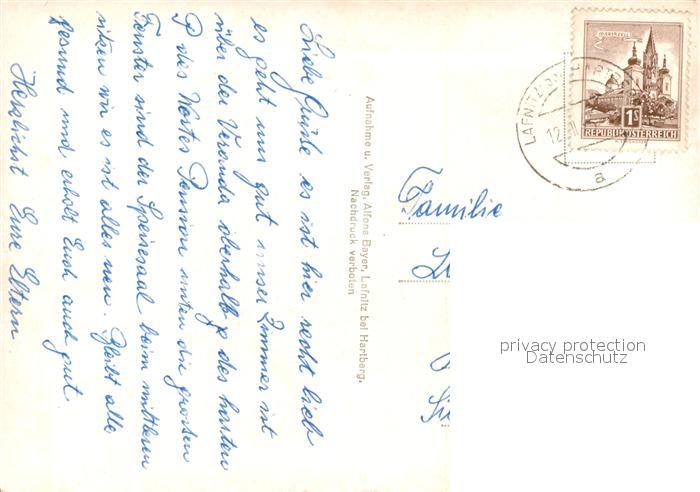 Liebe Grüße es ist hier recht lieb
es geht uns gut unser Zimmer ist
über der Veranda oberhalb p des harten
P des Wortes Pension unten die grossen
Fenster sind der Speisesaal beim mittleren
sitzen wir es ist alles neu. Bleibt alle
gesund und erholt Euch auch gut.
Herzlichst Eure Eltern.
Aufnahme u. Verlag, Alfons Bayer, Lafnitz bei Hartberg.
Nachdruck verboten
MARIAZELL
1S
REPUBLIK ÖSTERREICH
LAFNITZ
12.
a
Familie
privacy protection
Datenschutz